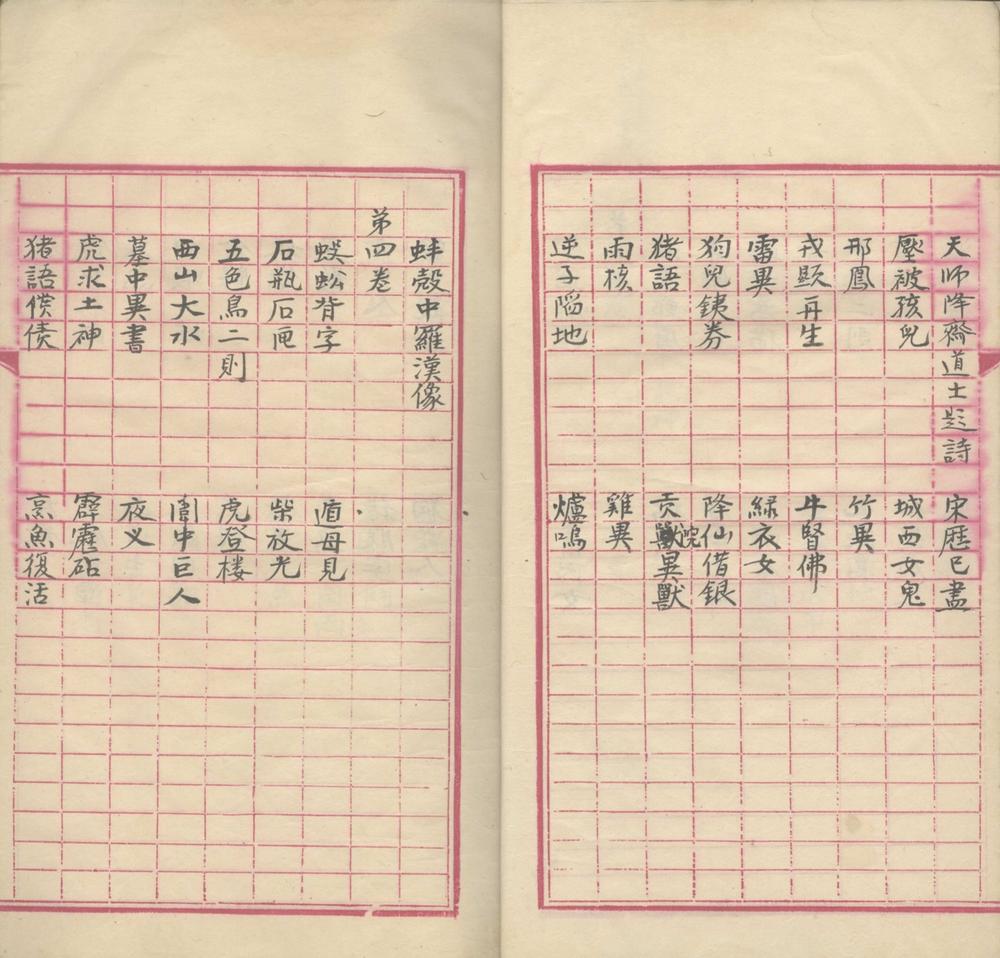 天師降齋道士題詩　宋歷已盡
壓被孩兒　城西女鬼
邢鳳　竹異
戎顯再生　牛腎佛
雷異　綠衣女
狗兒銕券　降仙借銀
猪語　貢獸異獸
雨核　雞異
逆子陷地　爐鳴
蚌殼中羅漢像
第四卷
蜈蚣背字　遁母見
石瓶石匣　柴放光
五色鳥二則　虎登楼
西山大水　闈中巨人
墓中異書　夜义
虎求土神　霹靂砧
猪語償债　烹魚復活